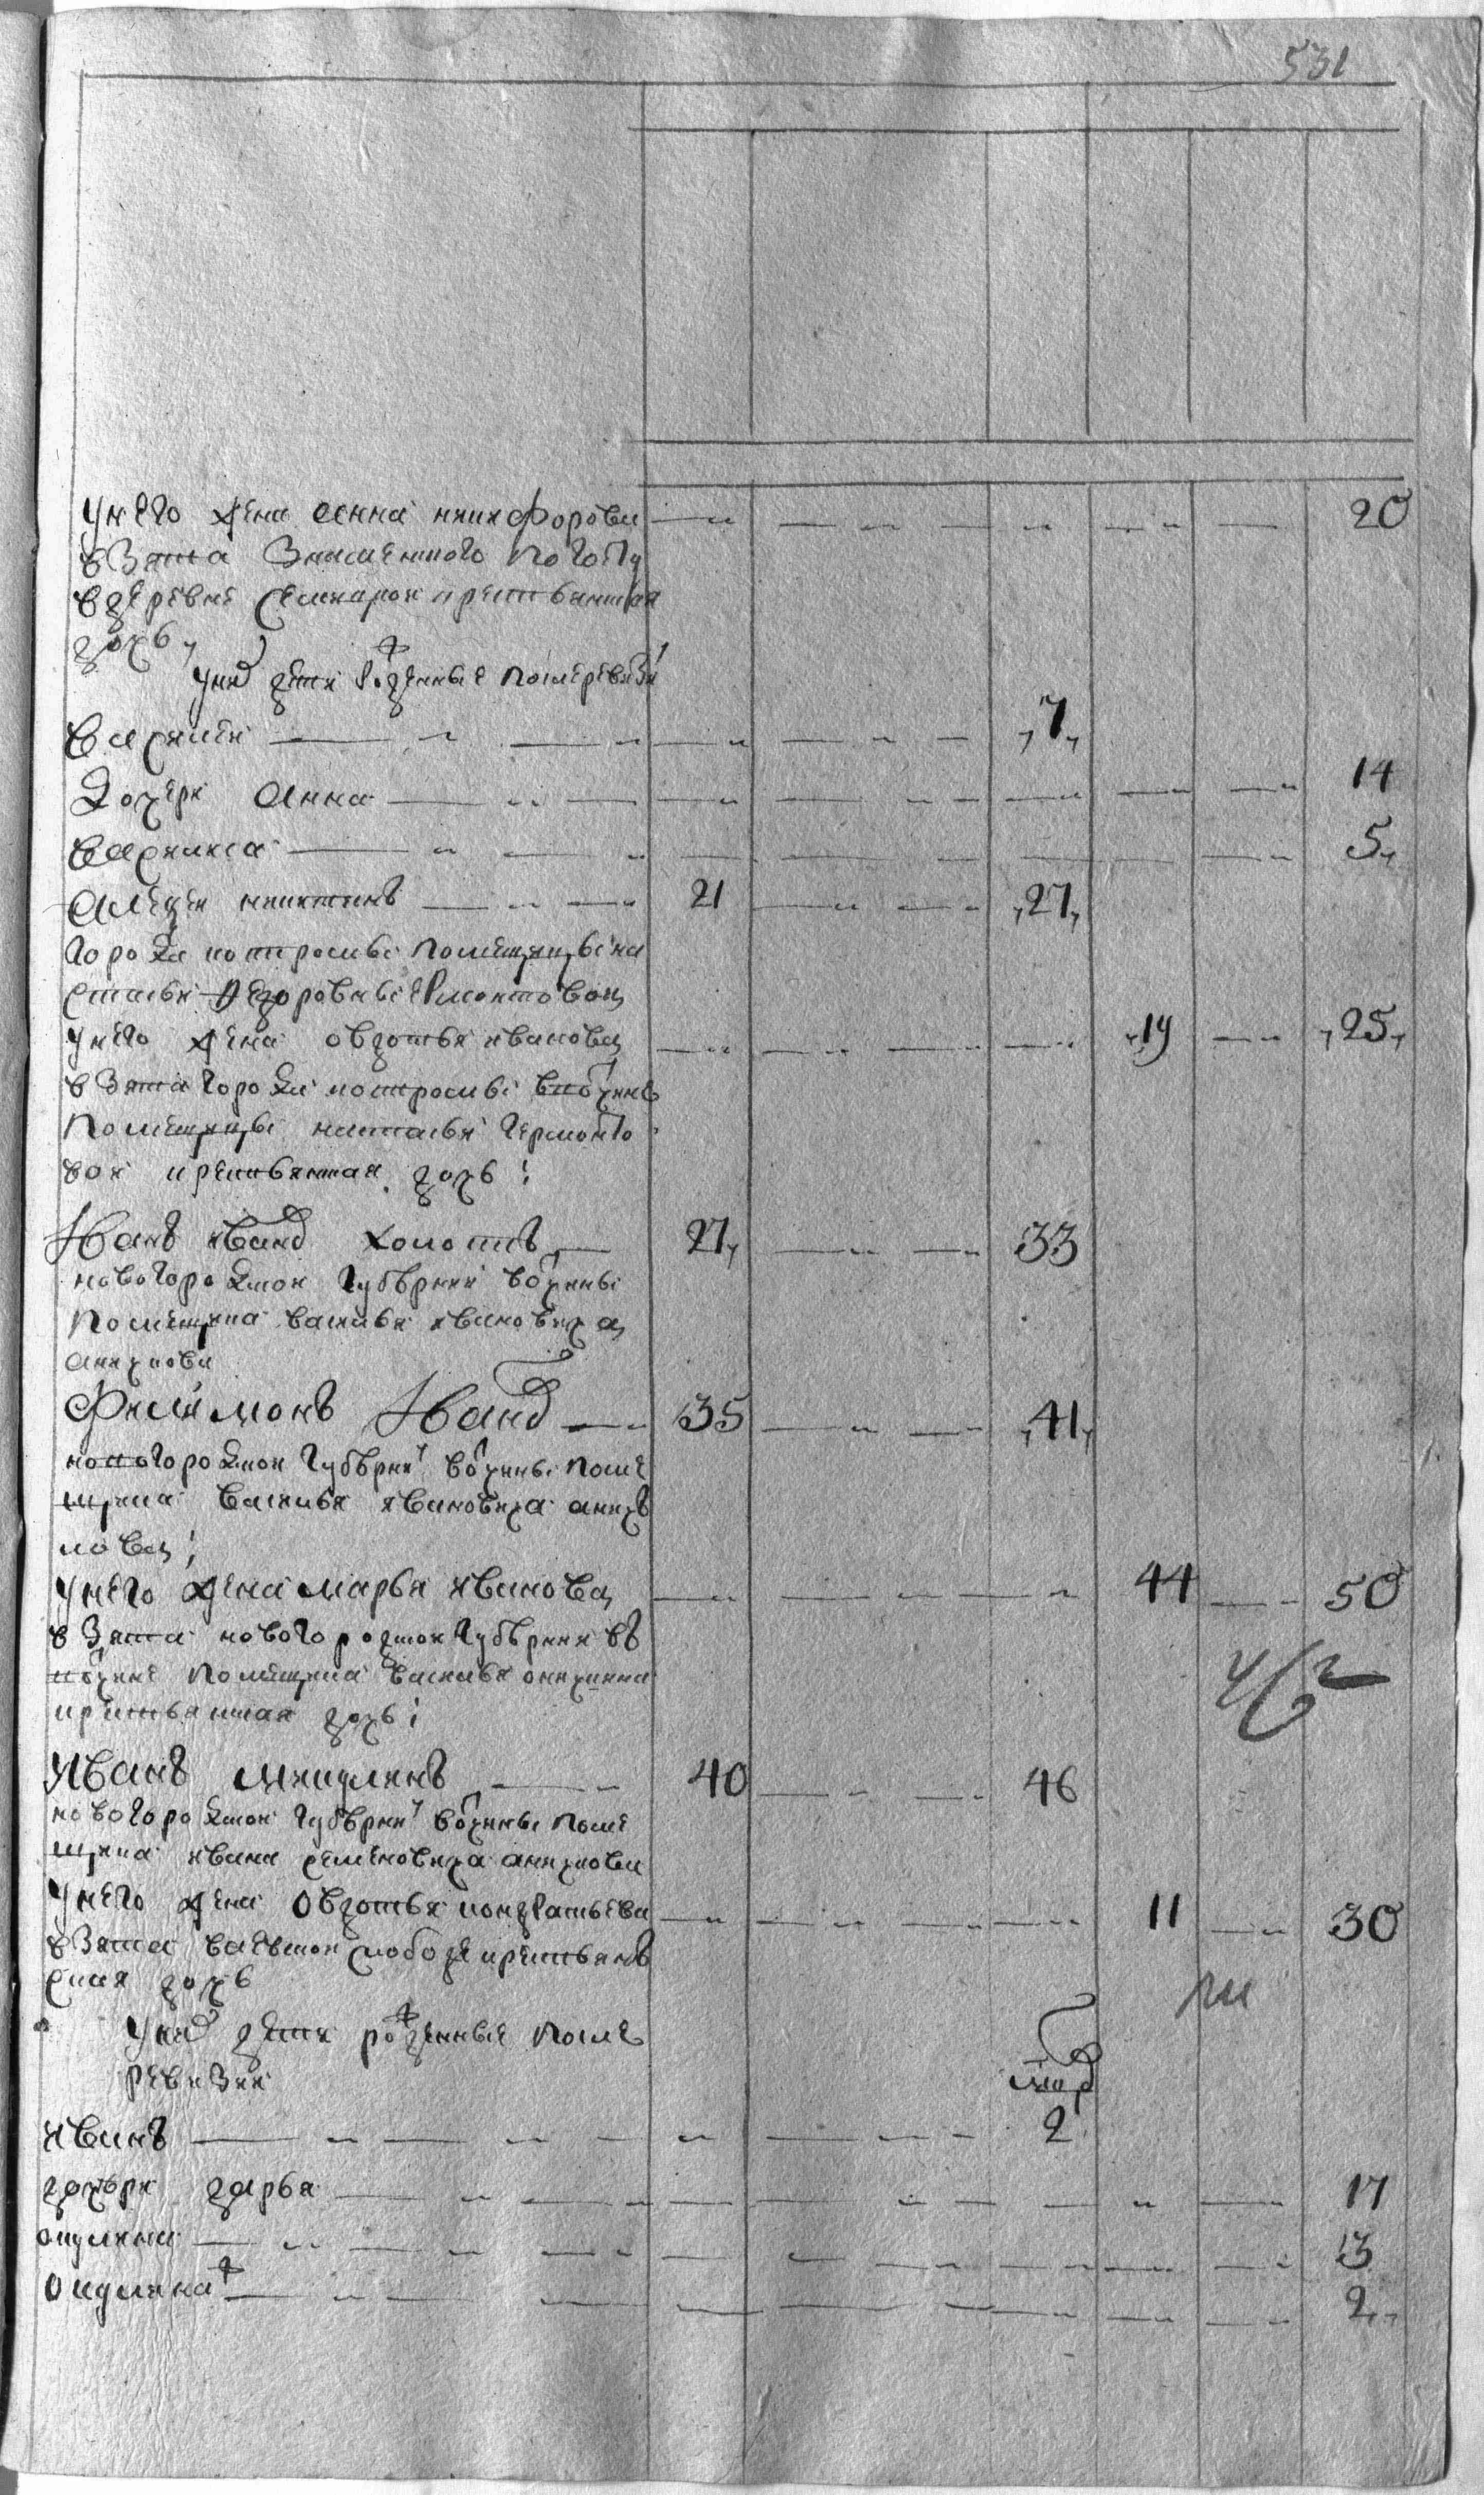 531
у него жена анна никифорова 20
взята знаменского погосту
в деревне крестьянская
дочь
у них дети рожденные после ревизи
василей 7
дочери анна 14
василиса 5
алексей никитинъ 21 27
города костромы помещицы на
тальи федоровны лермонтовой
у него жена овдотья иванова 19 25
взята города костромы вотчины
помещицы натальи лермонто
вой крестьянская дочь
иванъ ивановъ холопъ 27 33
новогородской губернии вотчины
помещика василья ивановича
аничкова
филимонъ ивановъ 35 41
новогородской губернии вотчины поме
щика василья ивановича анич
кова
у него жена марья иванова 44 50
взята новогородской губернии въ
вотчине помещика василья аничкова
крестьянская дочь
иванъ микулинъ 40 46
новогородской губернии вотчины поме
щика ивана семеновича аничкова
у него жена овдотья кондратьева 11 30
взята в слободе крестьян
ская дочь
у них дети рожденные после
ревизии
иванъ 2
дочери дарья 17
окулина 3
окулина 2